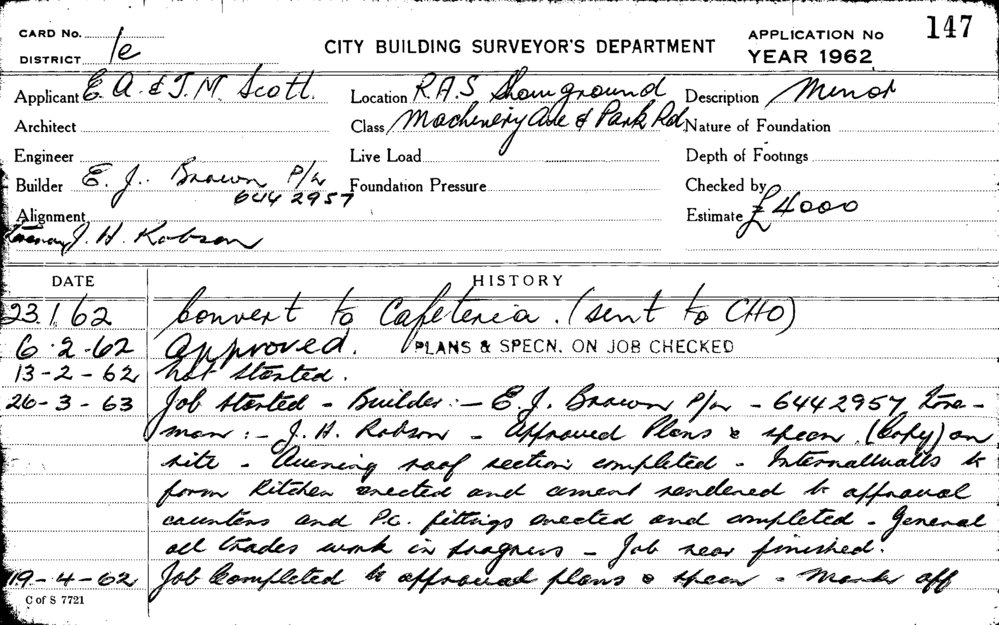 CARD No.
DISTRICT 1e
CITY BUILDING SURVEYOR'S DEPARTMENT
APPLICATION No 147
YEAR 1962
Applicant E. A. & J. M. Scott.
Location R.A.S Showground
Description Minor
Architect
Class Machinery Ave & Park Rd
Nature of Foundation
Engineer
Live Load
Depth of Footings
Builder E. J. Brown P/L
644 2957
Foundation Pressure
Checked by
Alignment
Estimate £4000
Foreman J. H. Robson
DATE HISTORY
23.1.62 Convert to Cafeteria. (sent to CHO)
6.2.62 Approved. PLANS & SPECN. ON JOB CHECKED
13-2-62 Not started.
26-3-63 Job started - Builder :- E. J. Brown P/L - 644 2957 Fore-
man :- J. H. Robson - Approved Plans & specn. (Copy) on
site - Awning roof section completed - Internal walls to
form Kitchen erected and cement rendered to approval
counters and P.C. fittings erected and completed - General
all trades work in progress - Job near finished.
19-4-62 Job Completed to approved plans & specn - Mark off
C of S 7721